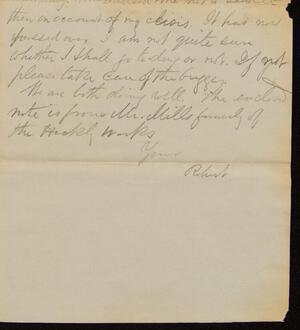 then on account of my
It had now
passed over. I am not quite sure
whether I shall go to day or not. If not
please take care of the
We are both doing well. The enclosed
note is from Mr. Mills formerly of
the Works
Yours
Robert